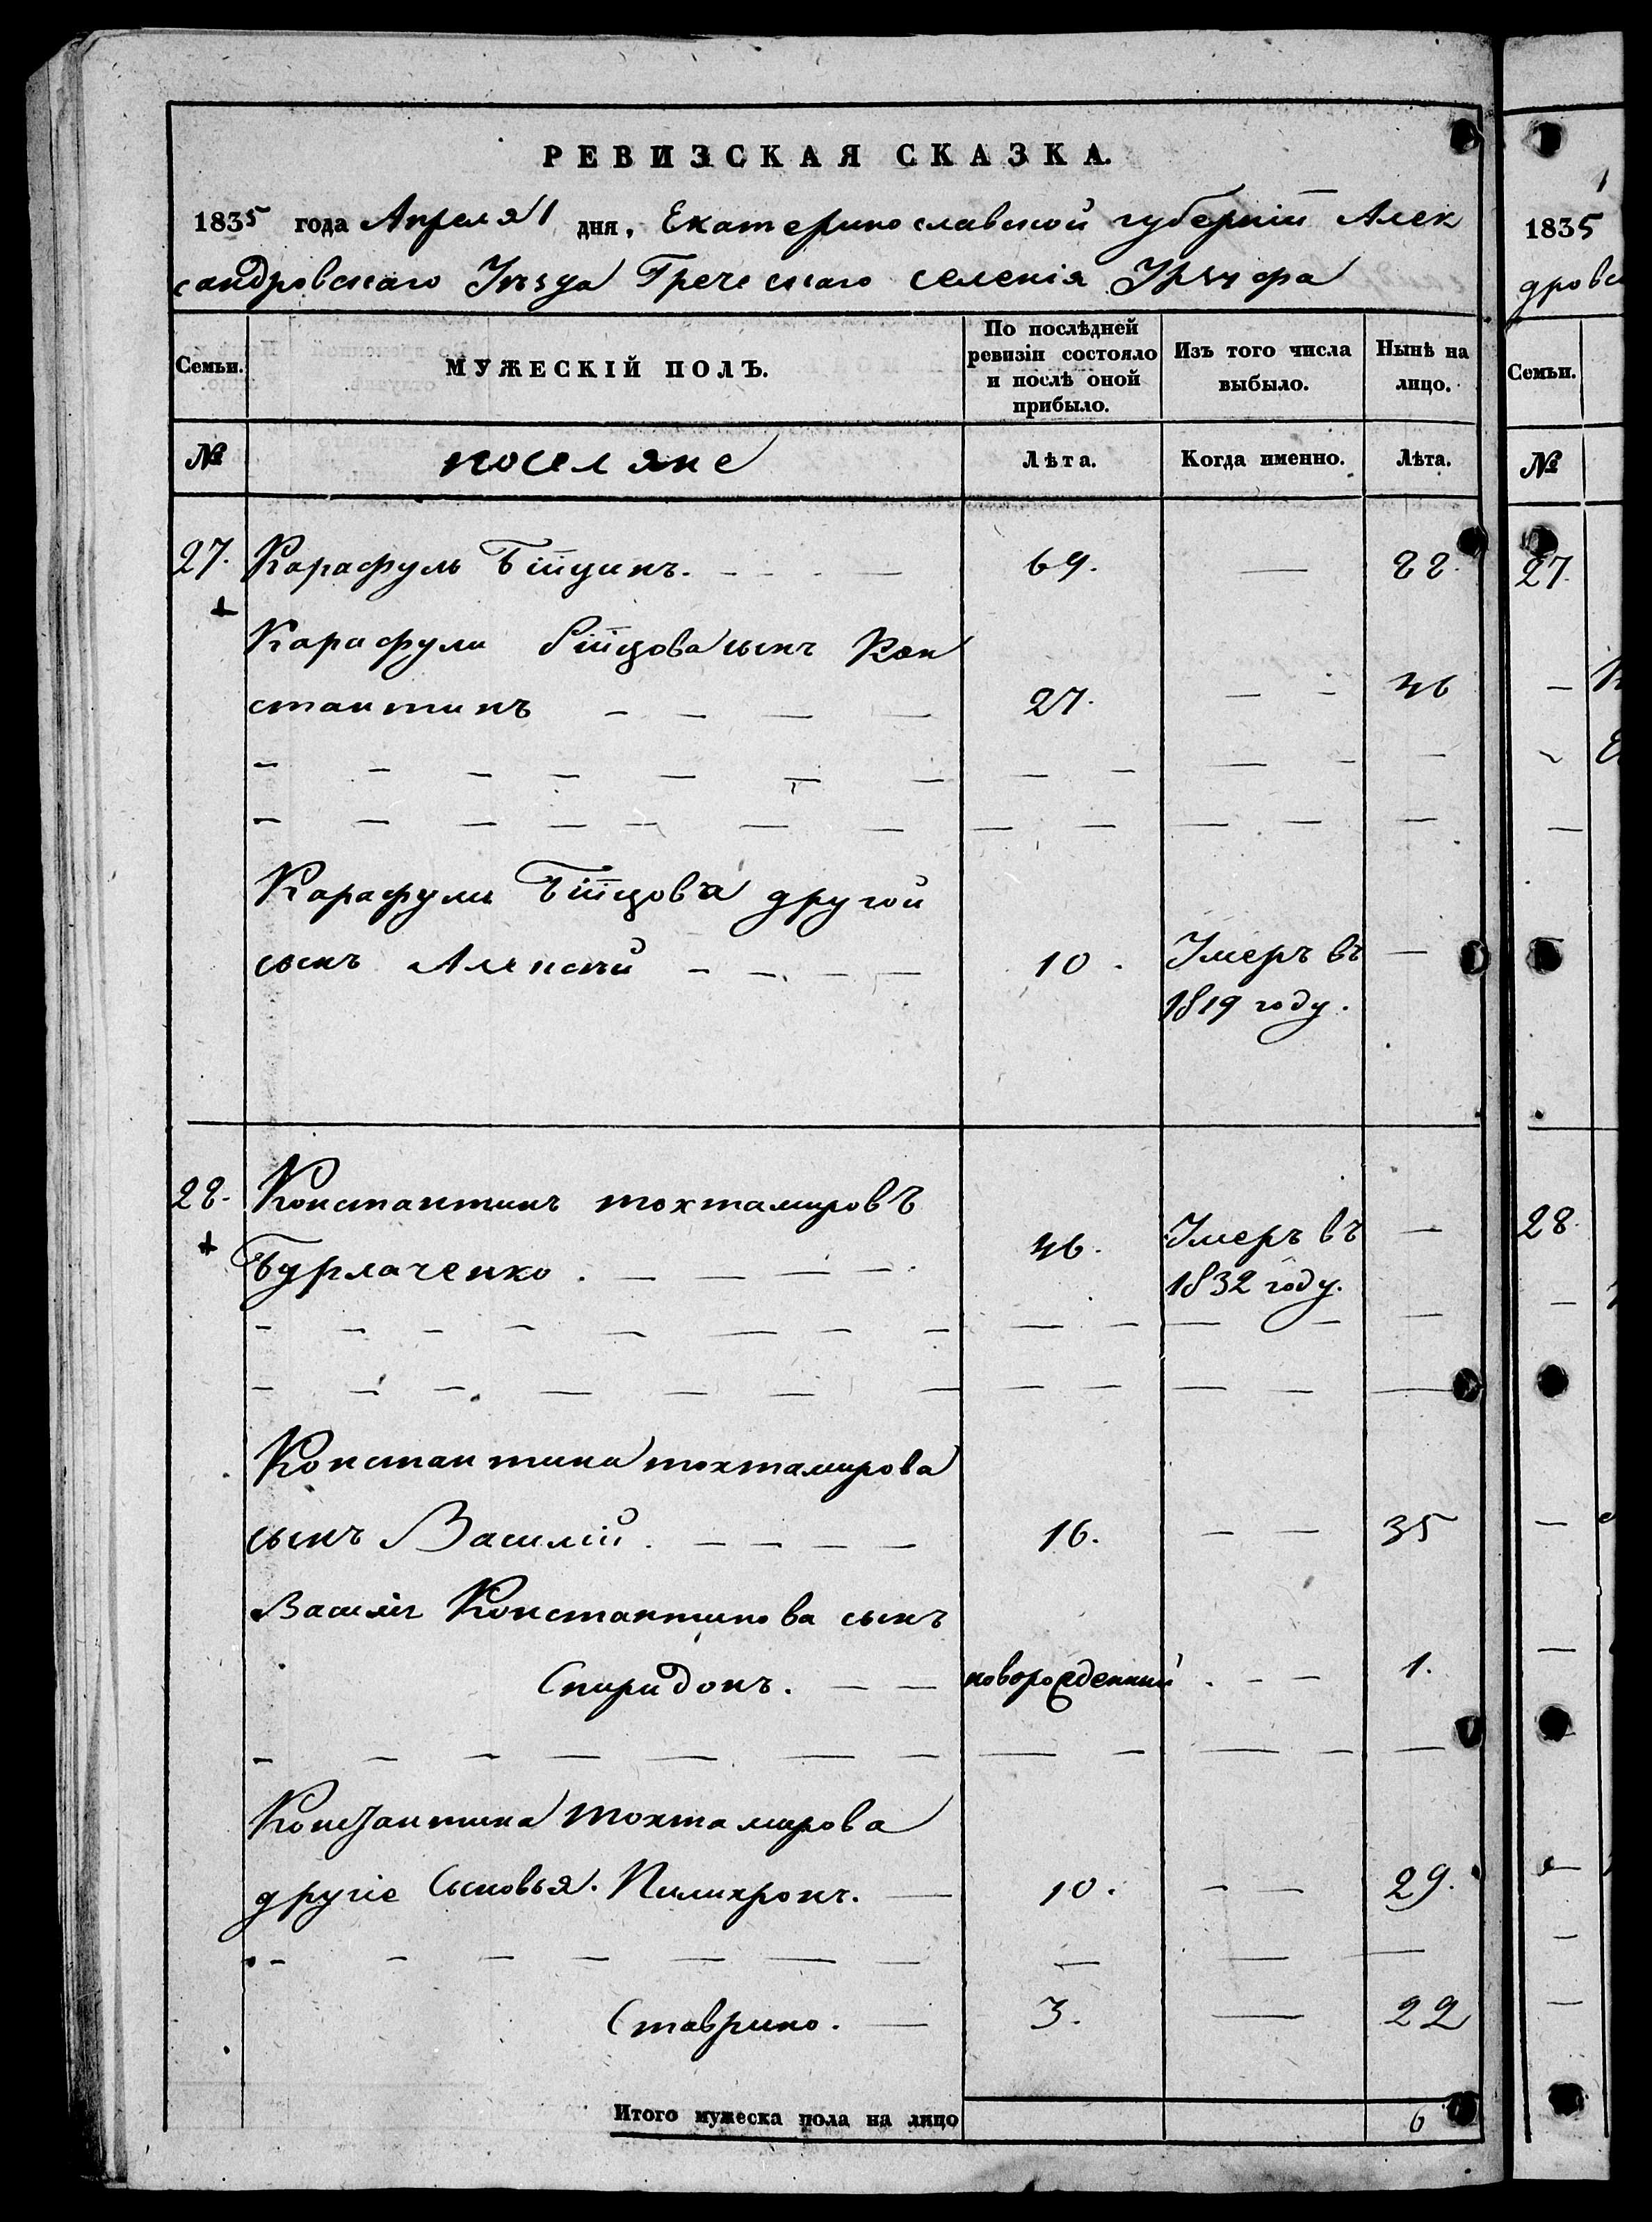 РЕВИЗСКАЯ СКАЗКА.
1835 года Апреля 1 дня, Екатеринославской губерніи Алек
сандровскаго Уѣзда Греческаго селенія Урзуфа
Семьи. МУЖЕСКІЙ ПОЛЪ. По послѣдней ревизіи состояло и послѣ оной прибыло. Изъ того числа выбыло. Нынѣ на лицо.
№ поселяне Лѣта. Когда именно. Лѣта.
27. Карафуль 69. — 88.
Карафули сынъ Кон
стантинъ 27. — 46
Карафули другой
сынъ Алексѣй 10. Умеръ въ —
1819 году.
28. Константинъ тохтамировъ
Бурлаченко. 46. Умеръ въ —
1832 году.
Константина тохтамирова
сынъ Василій. 16. — — 35
Василія Константинова сынъ
Спиридонъ. — — новорожденный — 1.
Константина тохтамирова
другіе Сыновья. Пилихронъ. — 10. — — 29.
Ставрино. — 3. — 22
Итого мужеска пола на лицо 6
1835
дровс
Семьи.
№
27.
28.